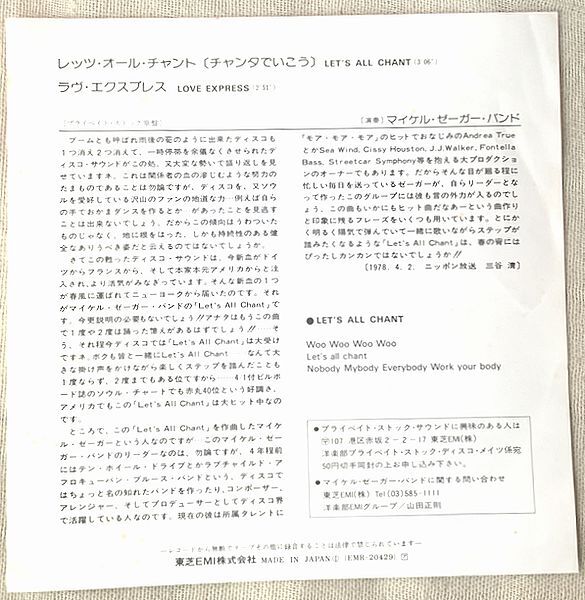 レッツ・オール・チャント〔チャンタでいこう〕 LET'S ALL CHANT (3′06″)
ラヴ・エクスプレス LOVE EXPRESS (2′51″)
〔演奏〕マイケル・ゼーガー・バンド
ブームとも呼ばれ雨後の筍のように出来たディスコも
1つ消え2つ消えて、一時停滞を余儀なくさせられたデ
ィスコ・サウンドがこの処、又大変な勢いで盛り返しを見
せていますネ。これは関係者の血の滲じむような努力の
たまものであることは勿論ですが、ディスコを、又ソウ
ルを愛好している沢山のファンの地道な力—例えば自ら
の手でおかまダンスを作るとか—があったことを見逃す
ことは出来ないでしょう。だからこの傾向はうわついた
ものじゃなく、地に根をはった、しかも持続性のある健
全なありうべき姿だと云えるのではないでしょうか。
さてこの甦ったディスコ・サウンドは、今新血がドイ
ツからフランスから、そして本家本元アメリカからと注
入され、より活気がみなぎっています。そんな新血の1つ
が春風に運ばれてニューヨークから届いたのです。それ
がマイケル・ゼーガー・バンドの「Let's All Chant」で
す。今更説明の必要もないでしょう!!アナタはもうこの曲
で1度や2度は踊った憶えがあるはずでしょう!!……そ
う、それ程今ディスコでは「Let's All Chant」は大受け
ですネ。ボクも皆と一緒にLet's All Chant……なんて大
きな掛け声をかけながら楽しくステップを踏んだことも
1度ならず、2度までもある位ですから……4/1付ビルボ
ード誌のソウル・チャートでも赤丸40位という好調さ、
アメリカでもこの「Let's All Chant」は大ヒット中なの
です。
ところで、この「Let's All Chant」を作曲したマイケ
ル・ゼーガーという人なのですが—このマイケル・ゼー
ガー・バンドのリーダーなのは、勿論ですが、4年程前
にはテン・ホイール・ドライブとかラブチャイルド・ア
フロキューバン・ブルース・バンドという、ディスコで
はちょっと名の知れたバンドを作ったり、コンポーザー、
アレンジャー、そしてプロデューサーとしてディスコ界
で活躍している人なのです。現在の彼は所属タレントに
「モア・モア・モア」のヒットでおなじみのAndrea True
とかSea Wind, Cissy Houston, J.J.Walker, Fontella
Bass, Streetcar Symphony等を抱える大プロダクショ
ンのオーナーでもあります。だからそんな目が廻る程に
忙しい毎日を送っているゼーガーが、自らリーダーとな
って作ったこのグループには彼も音の外力が入るのでし
ょう、この曲もいかにもヒット曲だなあーという曲作り
と印象に残るフレーズをいくつも用いています。とにか
く明るく陽気で弾んでいて一緒に歌いながらステップが
踏みたくなるような「Let's All Chant」は、春の宵には
ぴったしカンカンではないでしょうか!!
〔1978. 4. 2. ニッポン放送 三谷 清〕
●LET'S ALL CHANT
Woo Woo Woo Woo
Let's all chant
Nobody Mybody Everybody Work your body
●プライベイト・ストック・サウンドに興味のある人は
〒107 港区赤坂2−2−17 東芝EMI(株)
洋楽部プライベイト・ストック・ディスコ・メイツ係宛
50円切手同封の上お申し込み下さい。
●マイケル・ゼーガー・バンドに関する問い合わせ
東芝EMI(株) Tel(03)585-1111
洋楽部EMIグループ/山田正則
—レコードから無断でテープその他に録音することは法律で禁じられています—
東芝EMI株式会社 MADE IN JAPAN Ⓘ (EMR-20429) Ⓟ